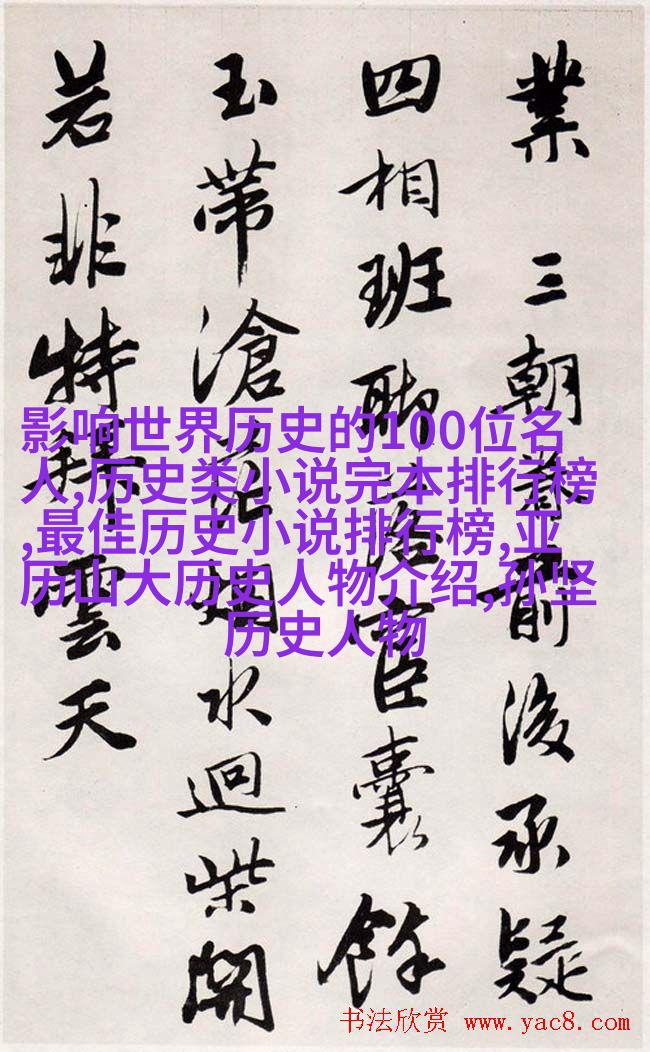 業 三朝前後承疑
四相班聯宦囊餘
玉帶滄水迴柴開
若非特雲天
影响世界历史的100位名
人,历史类小说完本排行榜
,最佳历史小说排行榜,亚
历山大历史人物介绍,孙坚
历史人物
书法欣赏 www.yac8.com